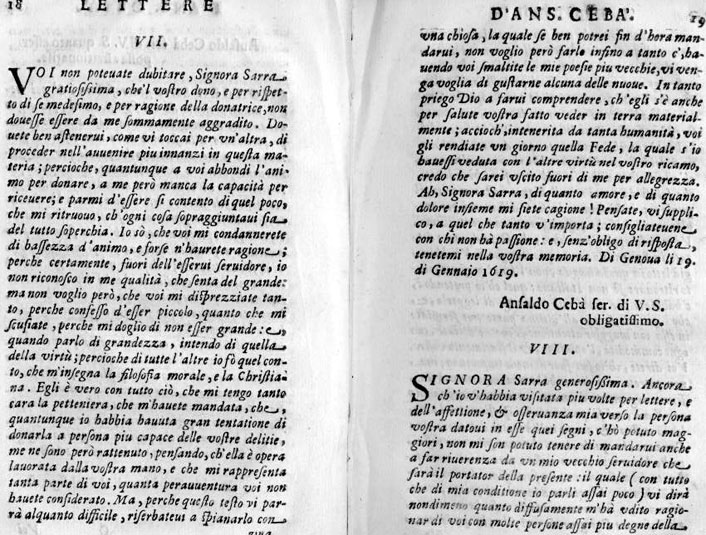 18 LETTERE
VII.
VOI non poteuate dubitare, Signora Sarra
gratiosissima, che'l vostro dono, e per rispet-
to di se medesimo, e per ragione della donatrice, non
douesse essere da me sommamente aggradito. Do-
uete ben astenerui, come vi toccai per vn'altra, di
proceder nell'auuenire piu innanzi in questa ma-
teria; percioche, quantunque a voi abbondi l'ani-
mo per donare, a me però manca la capacità per
riceuere; e parmi d'essere sì contento di quel poco,
che mi ritruouo, ch'ogni cosa sopraggiuntaui sia
del tutto soperchia. Io sò, che voi mi condannerete
di bassezza d'animo, e forse n'haurete ragione;
perche certamente, fuori dell'esserui seruidore, io
non riconosco in me qualità, che senta del grande:
ma non voglio però, che voi mi disprezziate tan-
to, perche confesso d'esser piccolo, quanto che mi
scusiate, perche mi doglio di non esser grande: e,
quando parlo di grandezza, intendo di quella
della virtù; percioche di tutte l'altre io fò quel con-
to, che m'insegna la filosofia morale, e la Christia-
na. Egli è vero con tutto ciò, che mi tengo tanto
cara la pettiniera, che m'hauete mandata, che,
quantunque io habbia hauuta gran tentatione di
donarla a persona piu capace delle vostre delitie,
me ne sono però rattenuto, pensando, ch'ella è opera
lauorata dalla vostra mano, e che mi rappresenta
tanta parte di voi, quanta perauuentura voi non
hauete considerato. Ma, perche questo testo vi par-
rà alquanto difficile, riserbateui a spianarlo con
vna
D'ANS. CEBA'. 19
vna chiosa, la quale se ben potrei fin d'hora man-
darui, non voglio però farlo infino a tanto c'ha-
uendo voi smaltite le mie poesie piu vecchie, vi ven-
ga voglia di gustarne alcuna delle nuoue. In tanto
priego Dio a farui comprendere, ch'egli s'è anche
per salute vostra fatto veder in terra material-
mente; accioch', intenerita da tanta humanità, voi
gli rendiate vn giorno quella Fede, la quale s'io
hauessi veduta con l'altre virtù nel vostro ricamo,
credo che sarei vscito fuori di me per allegrezza.
Ah, Signora Sarra, di quanto amore, e di quanto
dolore insieme mi siete cagione! Pensate, vi suppli-
co, a quel che tanto v'importa; consigliateuene
con chi non hà passione: e, senz'obligo di risposta,
tenetemi nella vostra memoria. Di Genoua li 19.
di Gennaio 1619.
Ansaldo Cebà ser. di V. S.
obligatissimo.
VIII.
SIGNORA Sarra generosissima. Ancora
ch'io v'habbia visitata piu volte per lettere, e
dell'affettione, & osseruanza mia verso la persona
vostra datoui in esse quei segni, c'hò potuto mag-
giori, non mi son potuto tenere di mandarui anche
a far riuerenza da vn mio vecchio seruidore che
sarà il portator della presente: il quale (con tutto
che di mia conditione io parli assai poco) vi dirà
nondimeno quanto diffusamente m'hà vdito ragio-
nar di voi con molte persone assai piu degne della